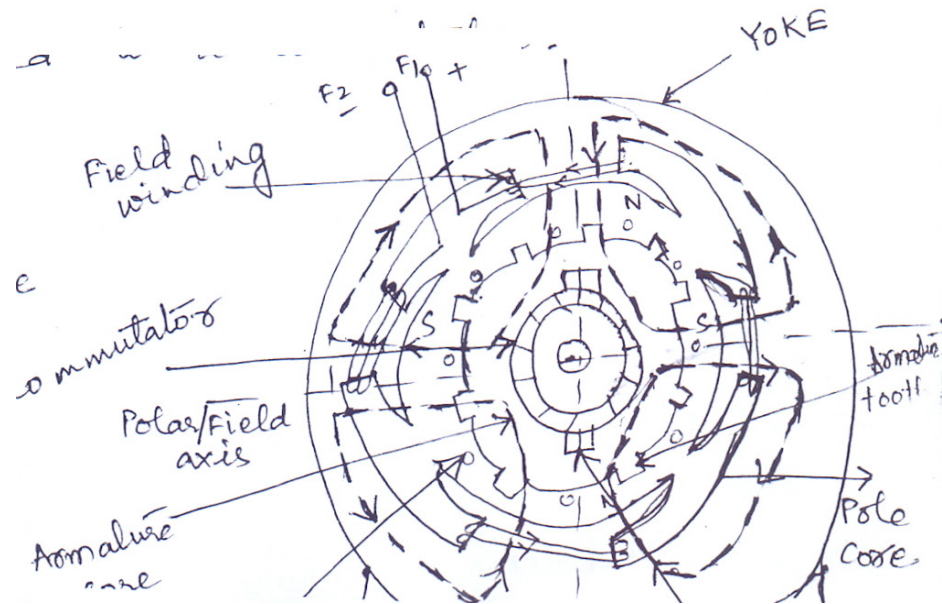 YOKE
F1 +
F2 -
Field
winding
N
S
S
ommutator
Armature
tooth
Polar/Field
axis
N
Pole
core
Armature